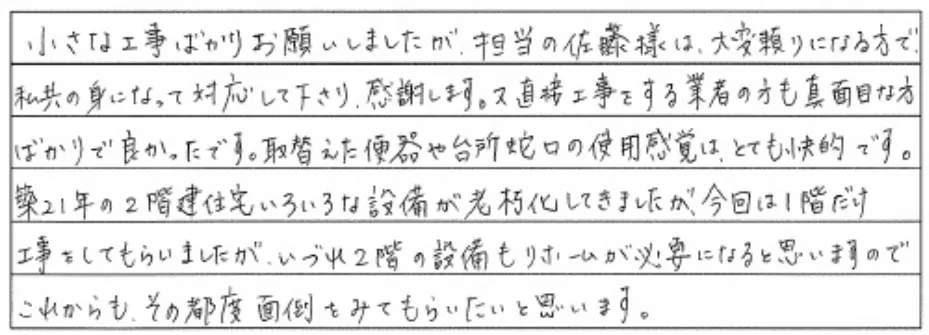 小さな工事ばかりお願いしましたが、担当の佐藤様は、大変頼りになる方で、
私共の身になって対応して下さり、感謝します。又直接工事をする業者の方も真面目な方
ばかりで良かったです。取替えた便器や台所蛇口の使用感覚は、とても快的です。
築21年の2階建住宅いろいろな設備が老朽化してきましたが、今回は1階だけ
工事をしてもらいましたが、いづれ2階の設備もリホームが必要になると思いますので
これからも、その都度面倒をみてもらいたいと思います。